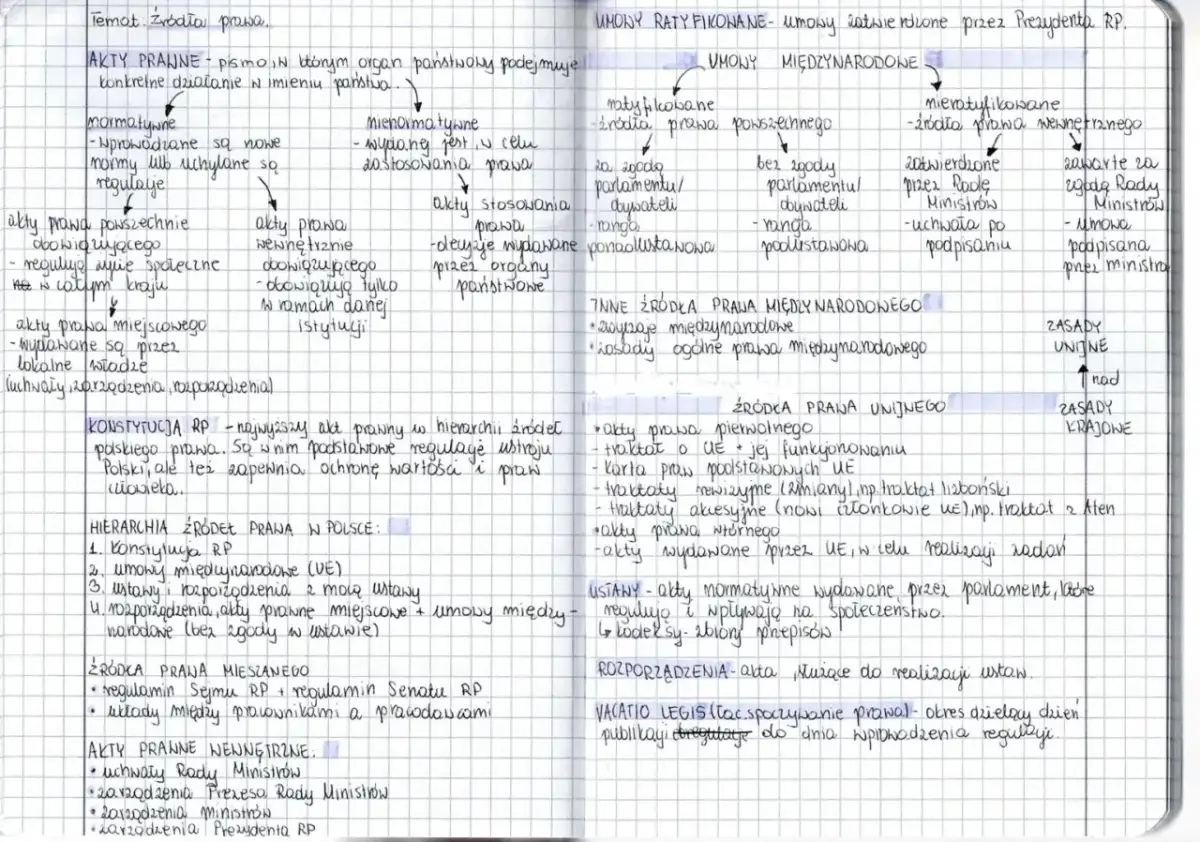 Temat: Źródła prawa.
AKTY PRAWNE - pismo, w którym organ państwowy podejmuje
konkretne działanie w imieniu państwa.
normatywne
- wprowadzane są nowe
normy lub uchylane są
regulacje
nienormatywne
- wydanej jest, w celu
zastosowania prawa
akty prawa powszechnie
obowiązującego
- regulują życie społeczne
w całym kraju
akty prawa
wewnętrznie
obowiązującego
- obowiązują tylko
w ramach danej
istytucji
akty stosowania
prawa
- decyzje wydawane
przez organy
państwowe
akty prawa miejscowego
- wydawane są przez
lokalne władze
(uchwały, zarządzenia, rozporządzenia)
KONSTYTUCJA RP - najwyższy akt prawny w hierarchii źródeł
polskiego prawa. Są w nim podstawowe regulacje ustroju
Polski, ale też zapewnia ochronę wartości i praw
człowieka.
HIERARCHIA ŹRÓDEŁ PRAWA W POLSCE:
1. Konstytucja RP
2. umowy międzynarodowe (UE)
3. ustawy i rozporządzenia z mocą ustawy
4. rozporządzenia, akty prawne miejscowe + umowy między-
narodowe (bez zgody w ustawie)
ŹRÓDŁA PRAWA MIESZANEGO
• regulamin Sejmu RP + regulamin Senatu RP
• układy między pracownikami a pracodawcami
AKTY PRAWNE WEWNĘTRZNE:
• uchwały Rady Ministrów
• zarządzenia Prezesa Rady Ministrów
• zarządzenia ministrów
• zarządzenia Prezydenta RP
UMOWY RATYFIKOWANE - umowy zatwierdzone przez Prezydenta RP.
UMOWY MIĘDZYNARODOWE
ratyfikowane
- źródła prawa powszechnego
nieratyfikowane
- źródła prawa wewnętrznego
za zgodą
parlamentu/
obywateli
- ranga
ponadustawowa
bez zgody
parlamentu/
obywateli
- ranga
podustawowa
zatwierdzone
przez Radę
Ministrów
- uchwała po
podpisaniu
zawarte za
zgodą Rady
Ministrów
- umowa
podpisana
przez ministra
INNE ŹRÓDŁA PRAWA MIĘDZYNARODOWEGO
• zwyczaje międzynarodowe
• zasady ogólne prawa międzynarodowego
ZASADY
UNIJNE
nad
ZASADY
KRAJOWE
ŹRÓDŁA PRAWA UNIJNEGO
• akty prawa pierwotnego
- traktat o UE + jej funkcjonowaniu
- Karta praw podstawowych UE
- traktaty rewizyjne (zmiany), np. traktat lizboński
- traktaty akcesyjne (nowi członkowie UE), np. traktat z Aten
• akty prawa wtórnego
- akty wydawane przez UE, w celu realizacji zadań
USTAWY - akty normatywne wydawane przez parlament, które
regulują i wpływają na społeczeństwo.
↳ kodeksy - zbiory przepisów
ROZPORZĄDZENIA - akta służące do realizacji ustaw.
VACATIO LEGIS (łac. spoczywanie prawa) - okres dzielący dzień
publikacji do dnia wprowadzenia regulacji.